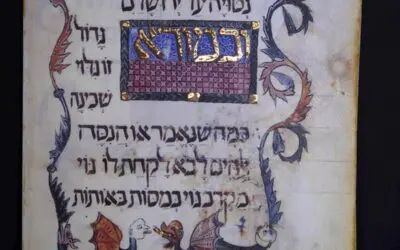 נטויה על ירושלם
ובמורא
גדול
זו גלוי
שכינה
כמה שנאמר או הנסה
אלהים לבא לקחת לו גוי
מקרב גוי במסות באותות